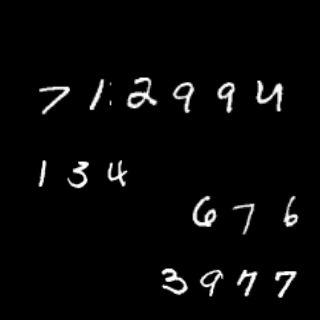 712994
134
676
3977